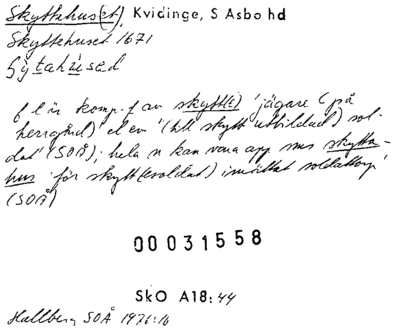 Skyttehus(et), Kvidinge, S Åsbo hd
Skyttehuset 1671
f l är komp-f av skytt(e) 'jägare (på
herrgård)' el ev '(till skytt utbildad) sol-
dat' (SOÅ); hela n kan vara app sms skytte-
hus 'för skytt(esoldat) inrättat soldattorp'
(SOÅ)
00031558
SkO A18:44
Hallberg SOÅ 1976:16